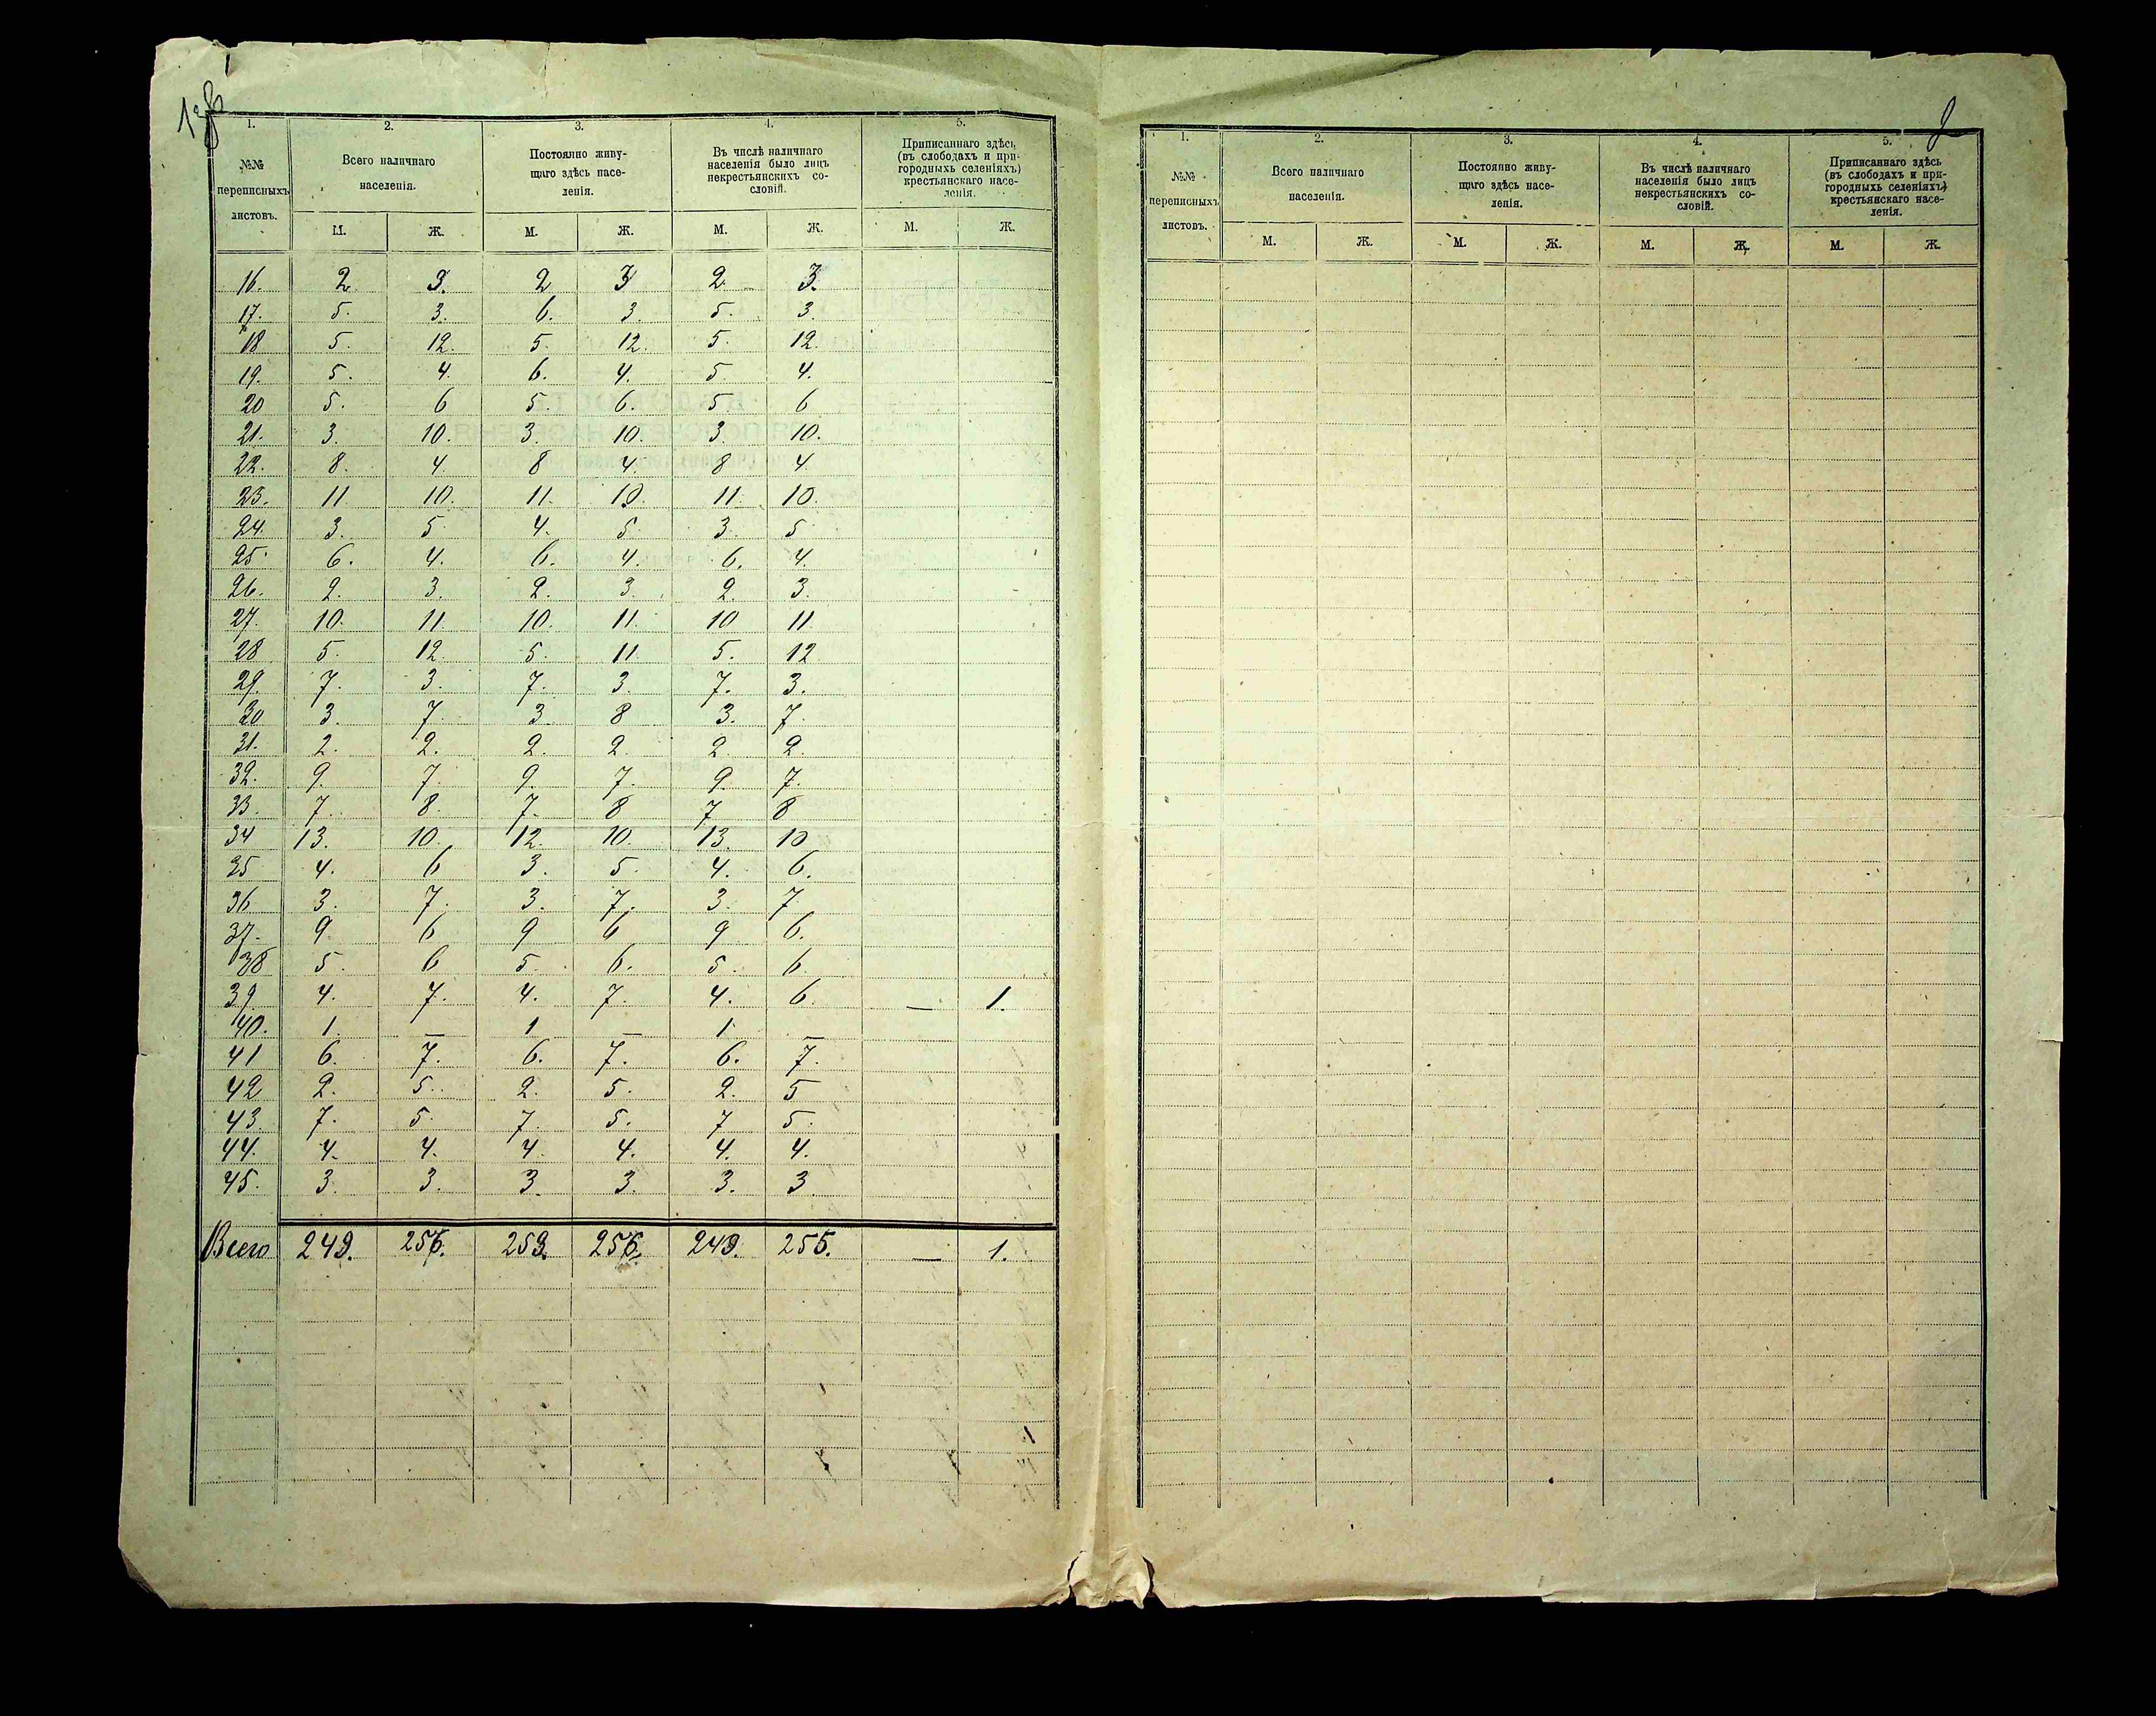 1.
2.
3.
4.
5.
№№ переписныхъ листовъ.
Всего наличнаго населенія.
Постоянно живущаго здѣсь населенія.
Въ числѣ наличнаго населенія было лицъ некрестьянскихъ сословій.
Приписаннаго здѣсь (въ слободахъ и пригородныхъ селеніяхъ) крестьянскаго населенія.
М. Ж. М. Ж. М. Ж. М. Ж.
16. 2 3. 2 3 2 3.
17. 5. 3. 6. 3. 5. 3.
18 5. 12. 5. 12. 5. 12.
19. 5. 4. 6. 4. 5. 4.
20 5. 6 5. 6. 5 6
21. 3. 10. 3. 10. 3. 10.
22. 8. 4. 8 4. 8 4.
23. 11 10. 11. 10. 11. 10.
24. 3. 5 4. 5. 3. 5
25 6. 4. 6. 4. 6. 4.
26. 2. 3. 2. 3. 2. 3.
27. 10. 11 10. 11. 10 11.
28 5. 12. 5. 11 5. 12
29. 7. 3. 7. 3. 7. 3.
30 3. 7. 3. 8 3. 7.
31. 2. 2. 2. 2. 2. 2.
32. 9. 7. 9. 7. 9. 7.
33. 7. 8. 7. 8 7 8
34 13. 10. 12. 10. 13. 10
35 4. 6 3. 5. 4. 6.
36 3. 7. 3. 7. 3. 7
37. 9. 6 9 6 9 6.
38 5. 6 5. 6. 5. 6.
39. 4. 7. 4. 7. 4. 6. — 1.
40. 1. — 1 — 1. —
41 6. 7. 6. 7. 6. 7.
42 2. 5. 2. 5. 2. 5
43. 7. 5. 7. 5. 7 5.
44. 4. 4. 4. 4. 4. 4.
45. 3. 3. 3. 3. 3. 3.
Всего 249. 256. 259. 256. 249. 255. — 1.
2
1.
2.
3.
4.
5.
№№ переписныхъ листовъ.
Всего наличнаго населенія.
Постоянно живущаго здѣсь населенія.
Въ числѣ наличнаго населенія было лицъ некрестьянскихъ сословій.
Приписаннаго здѣсь (въ слободахъ и пригородныхъ селеніяхъ) крестьянскаго населенія.
М. Ж. М. Ж. М. Ж. М. Ж.